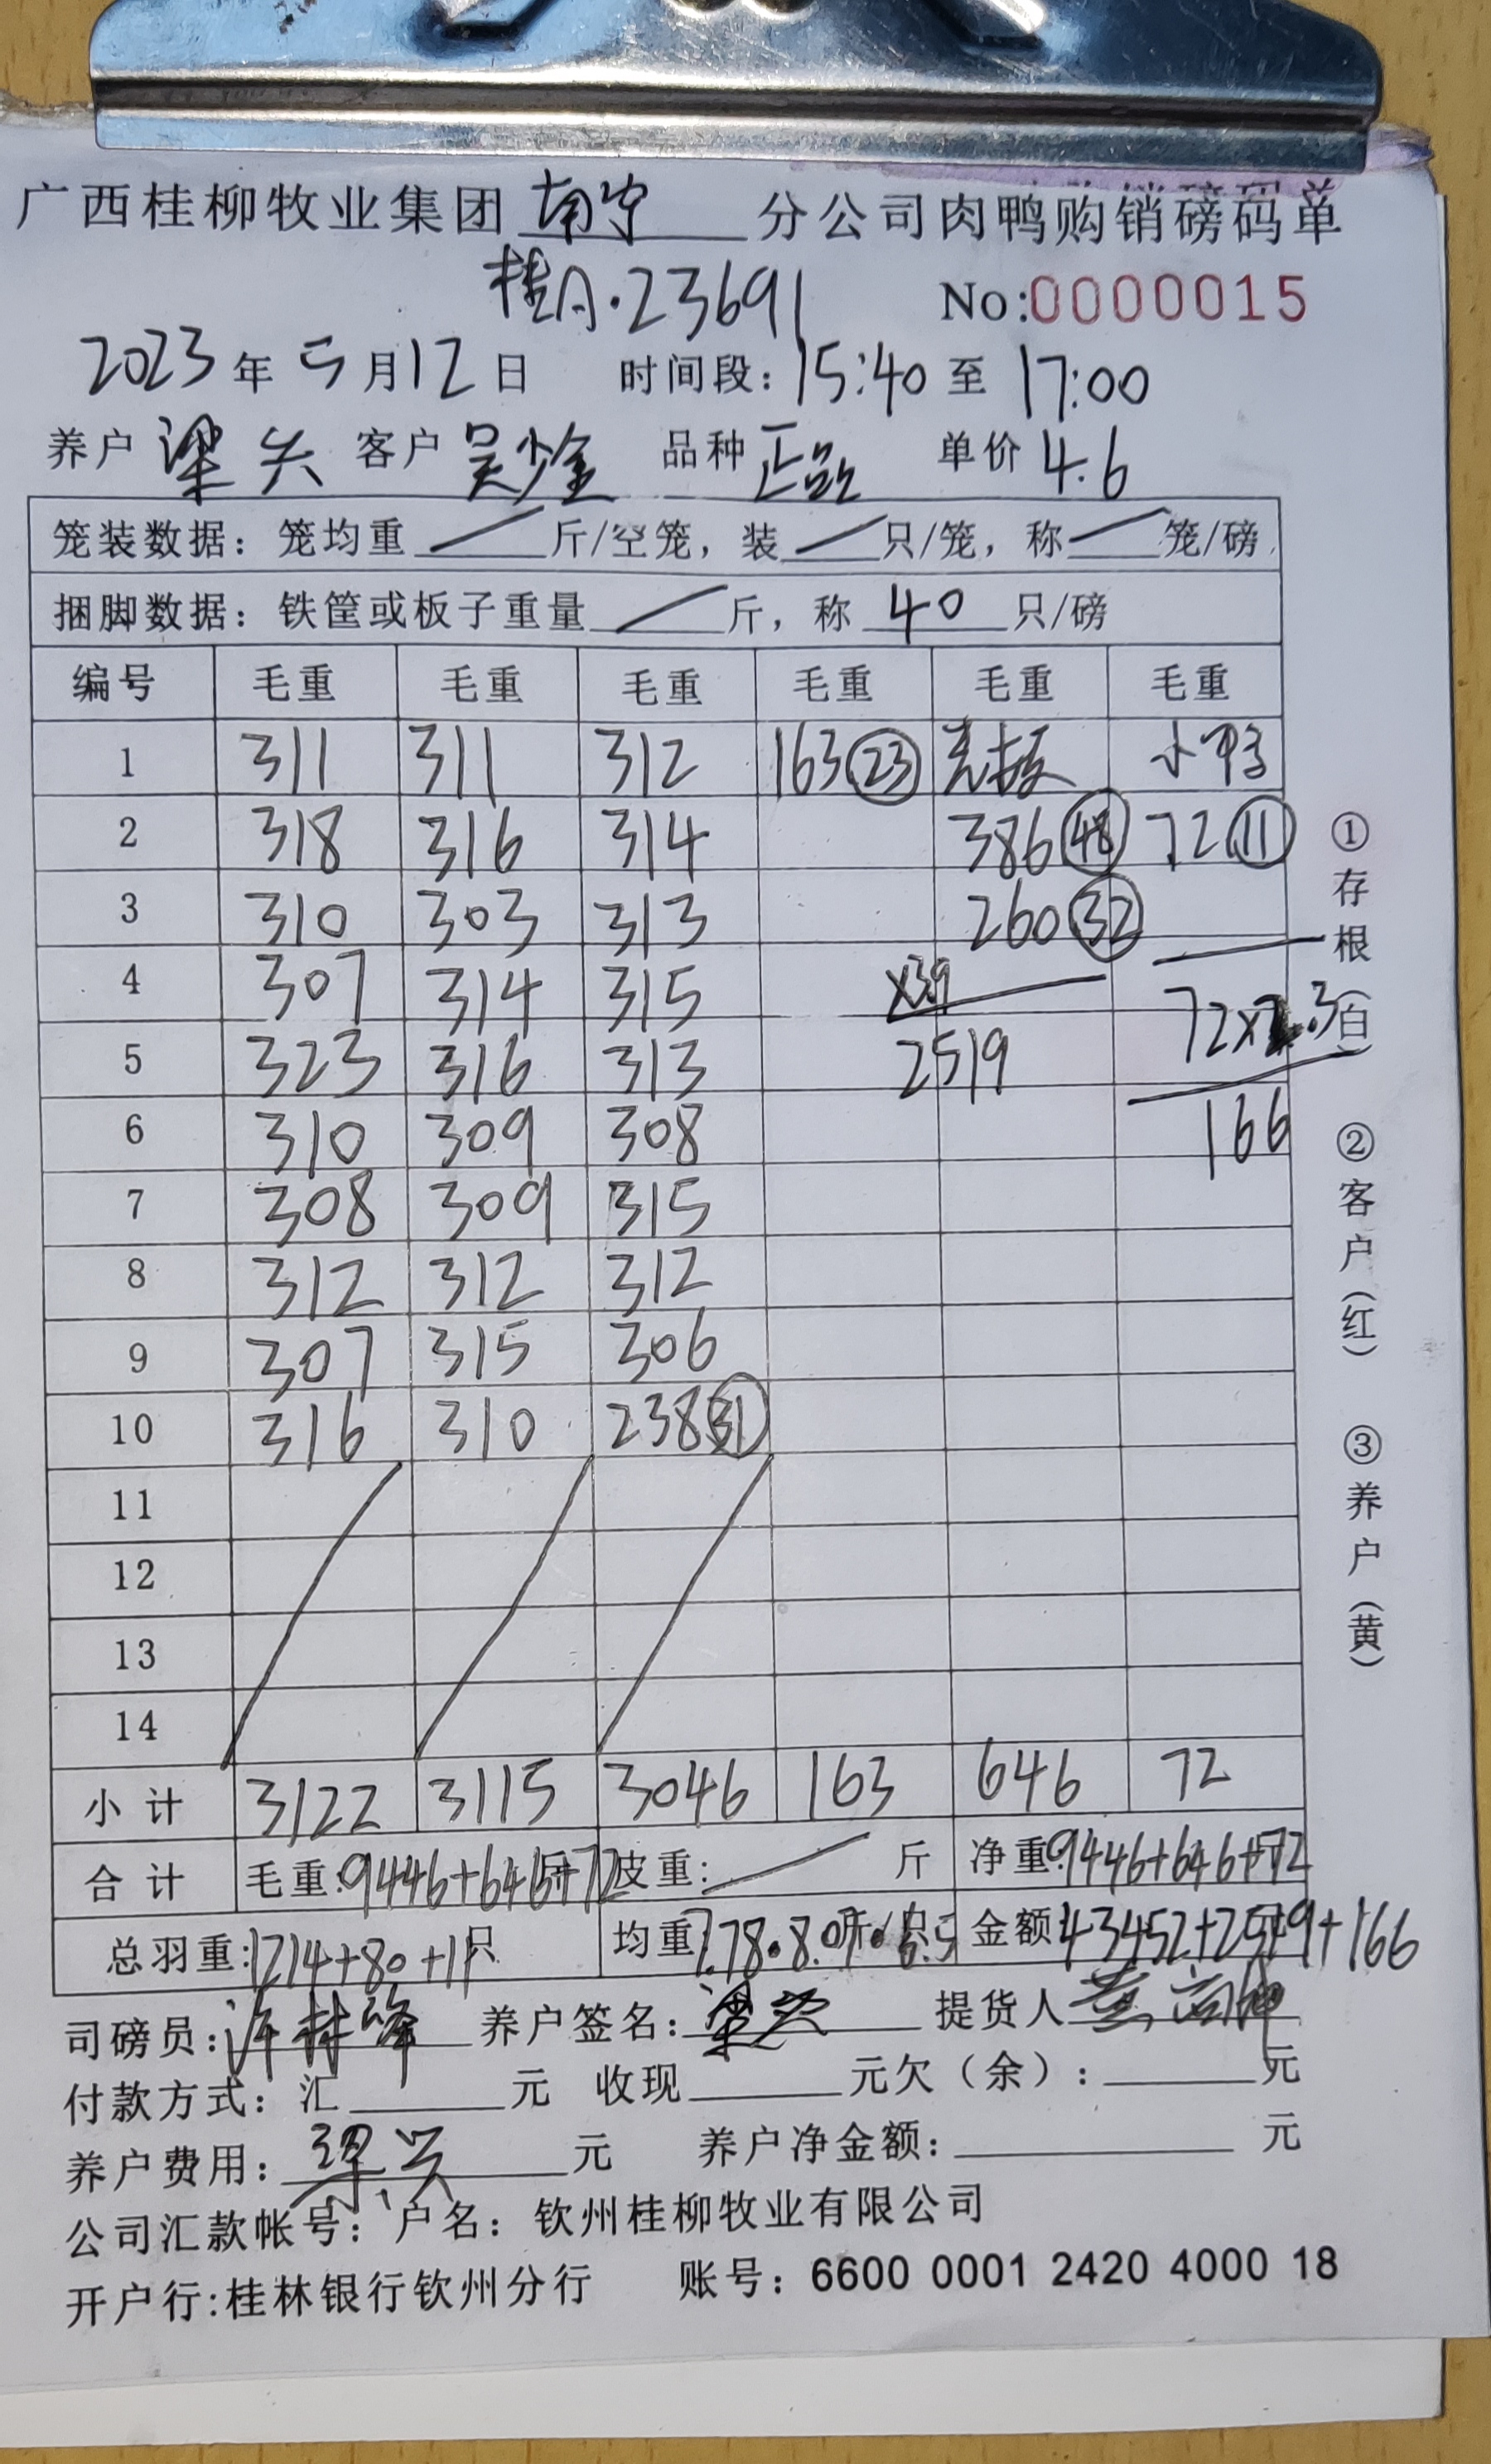 广西桂柳牧业集团 南宁 分公司肉鸭购销磅码单
桂A·23691 No:0000015
2023年5月12日 时间段:15:40至17:00
养户 梁兴 客户 吴 品种 正品 单价 4.6
笼装数据:笼均重 / 斤/空笼,装 / 只/笼,称 / 笼/磅
捆脚数据:铁筐或板子重量 / 斤,称 40 只/磅
编号 毛重 毛重 毛重 毛重 毛重 毛重
1 311 311 312 163 23 小鸭
2 318 316 314 386 48 72 11
3 310 303 313 260 32
4 307 314 315 x3.9 72x2.3
5 323 316 313 2519
6 310 309 308 166
7 308 309 315
8 312 312 312
9 307 315 306
10 316 310 238 31
11
12
13
14
小计 3122 3115 3046 163 646 72
合计 毛重:9446+646+72 皮重: / 斤 净重:9446+646+72
总羽重:1214+80+11只 均重7.78·8.07·6.5斤/只 金额43452+2519+166
司磅员:许林峰 养户签名:梁兴 提货人
付款方式:汇 元 收现 元欠(余): 元
养户费用:梁兴 元 养户净金额: 元
公司汇款帐号:户名:钦州桂柳牧业有限公司
开户行:桂林银行钦州分行 账号:6600 0001 2420 4000 18
①存根(白) ②客户(红) ③养户(黄)